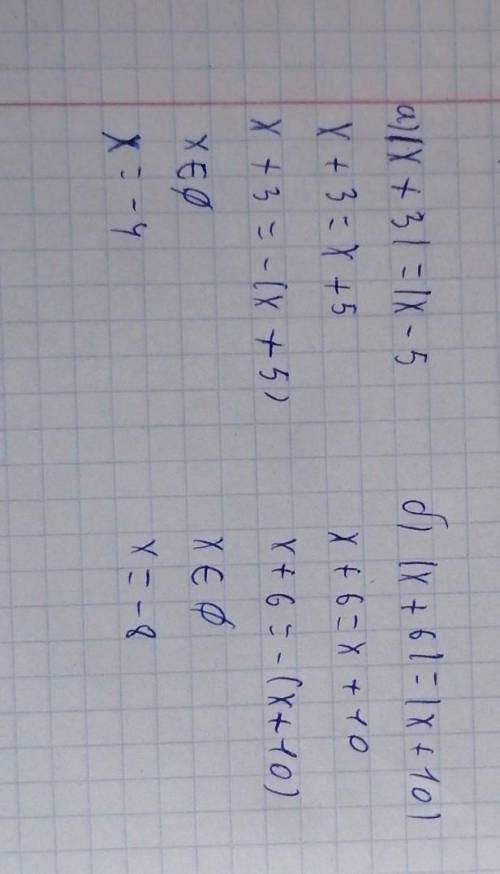 а) |x + 3| = |x - 5
x + 3 = x + 5
x + 3 = -(x + 5)
x ∈ ∅
x = -4
б) |x + 6| = |x + 10|
x + 6 = x + 10
x + 6 = -(x + 10)
x ∈ ∅
x = -8